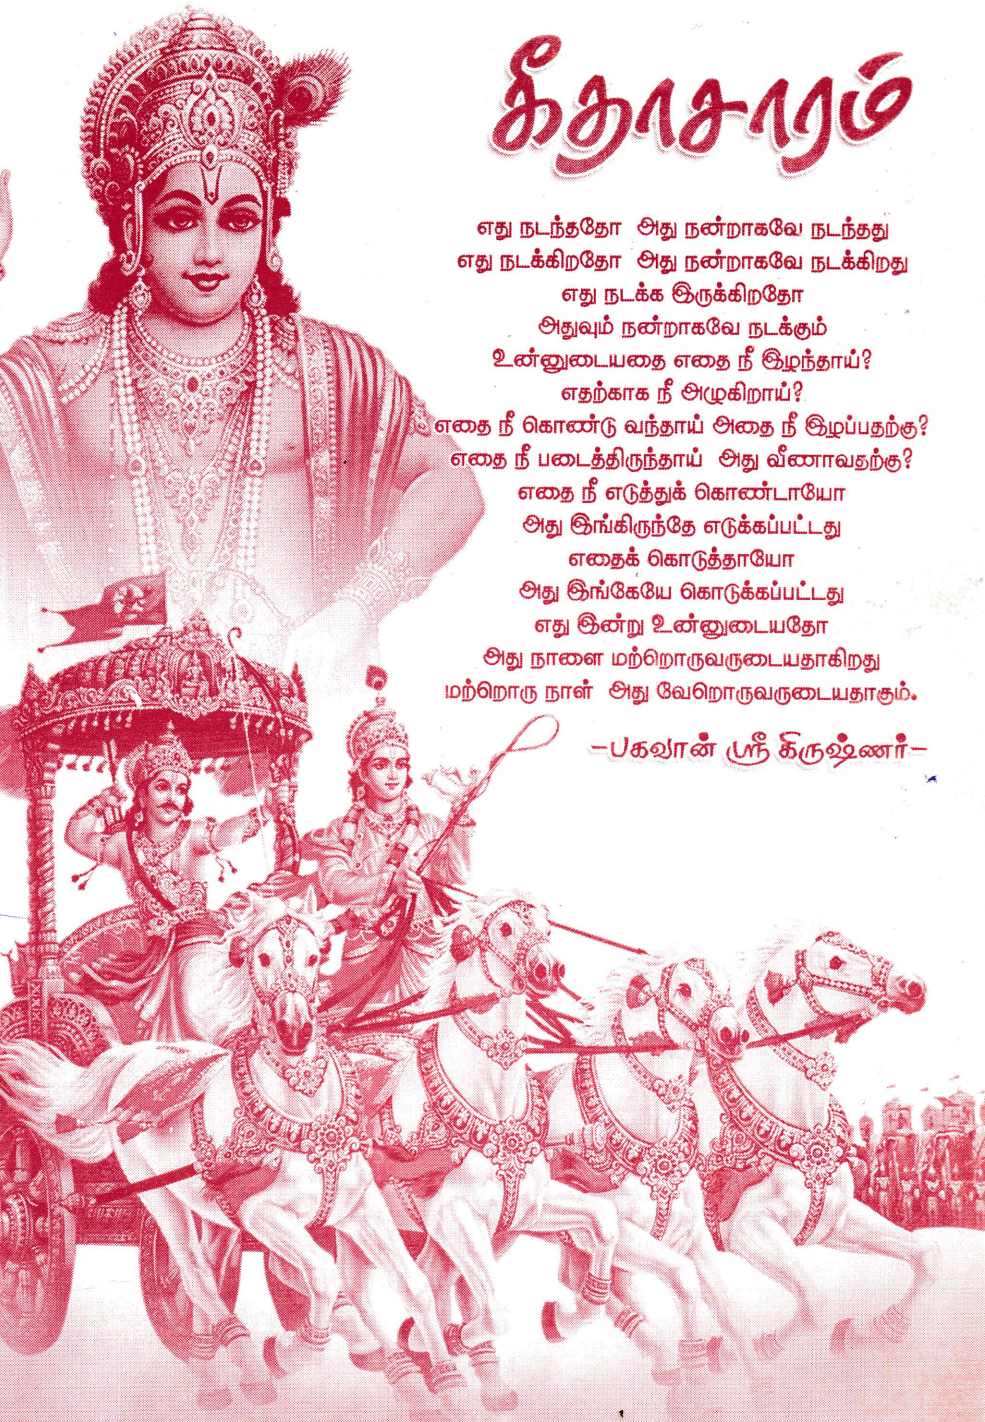 கீதாசாரம்
எது நடந்ததோ அது நன்றாகவே நடந்தது
எது நடக்கிறதோ அது நன்றாகவே நடக்கிறது
எது நடக்க இருக்கிறதோ
அதுவும் நன்றாகவே நடக்கும்
உன்னுடையதை எதை நீ இழந்தாய்?
எதற்காக நீ அழுகிறாய்?
எதை நீ கொண்டு வந்தாய் அதை நீ இழப்பதற்கு?
எதை நீ படைத்திருந்தாய் அது வீணாவதற்கு?
எதை நீ எடுத்துக் கொண்டாயோ
அது இங்கிருந்தே எடுக்கப்பட்டது
எதைக் கொடுத்தாயோ
அது இங்கேயே கொடுக்கப்பட்டது
எது இன்று உன்னுடையதோ
அது நாளை மற்றொருவருடையதாகிறது
மற்றொரு நாள் அது வேறொருவருடையதாகும்.
-பகவான் ஸ்ரீ கிருஷ்ணர்-